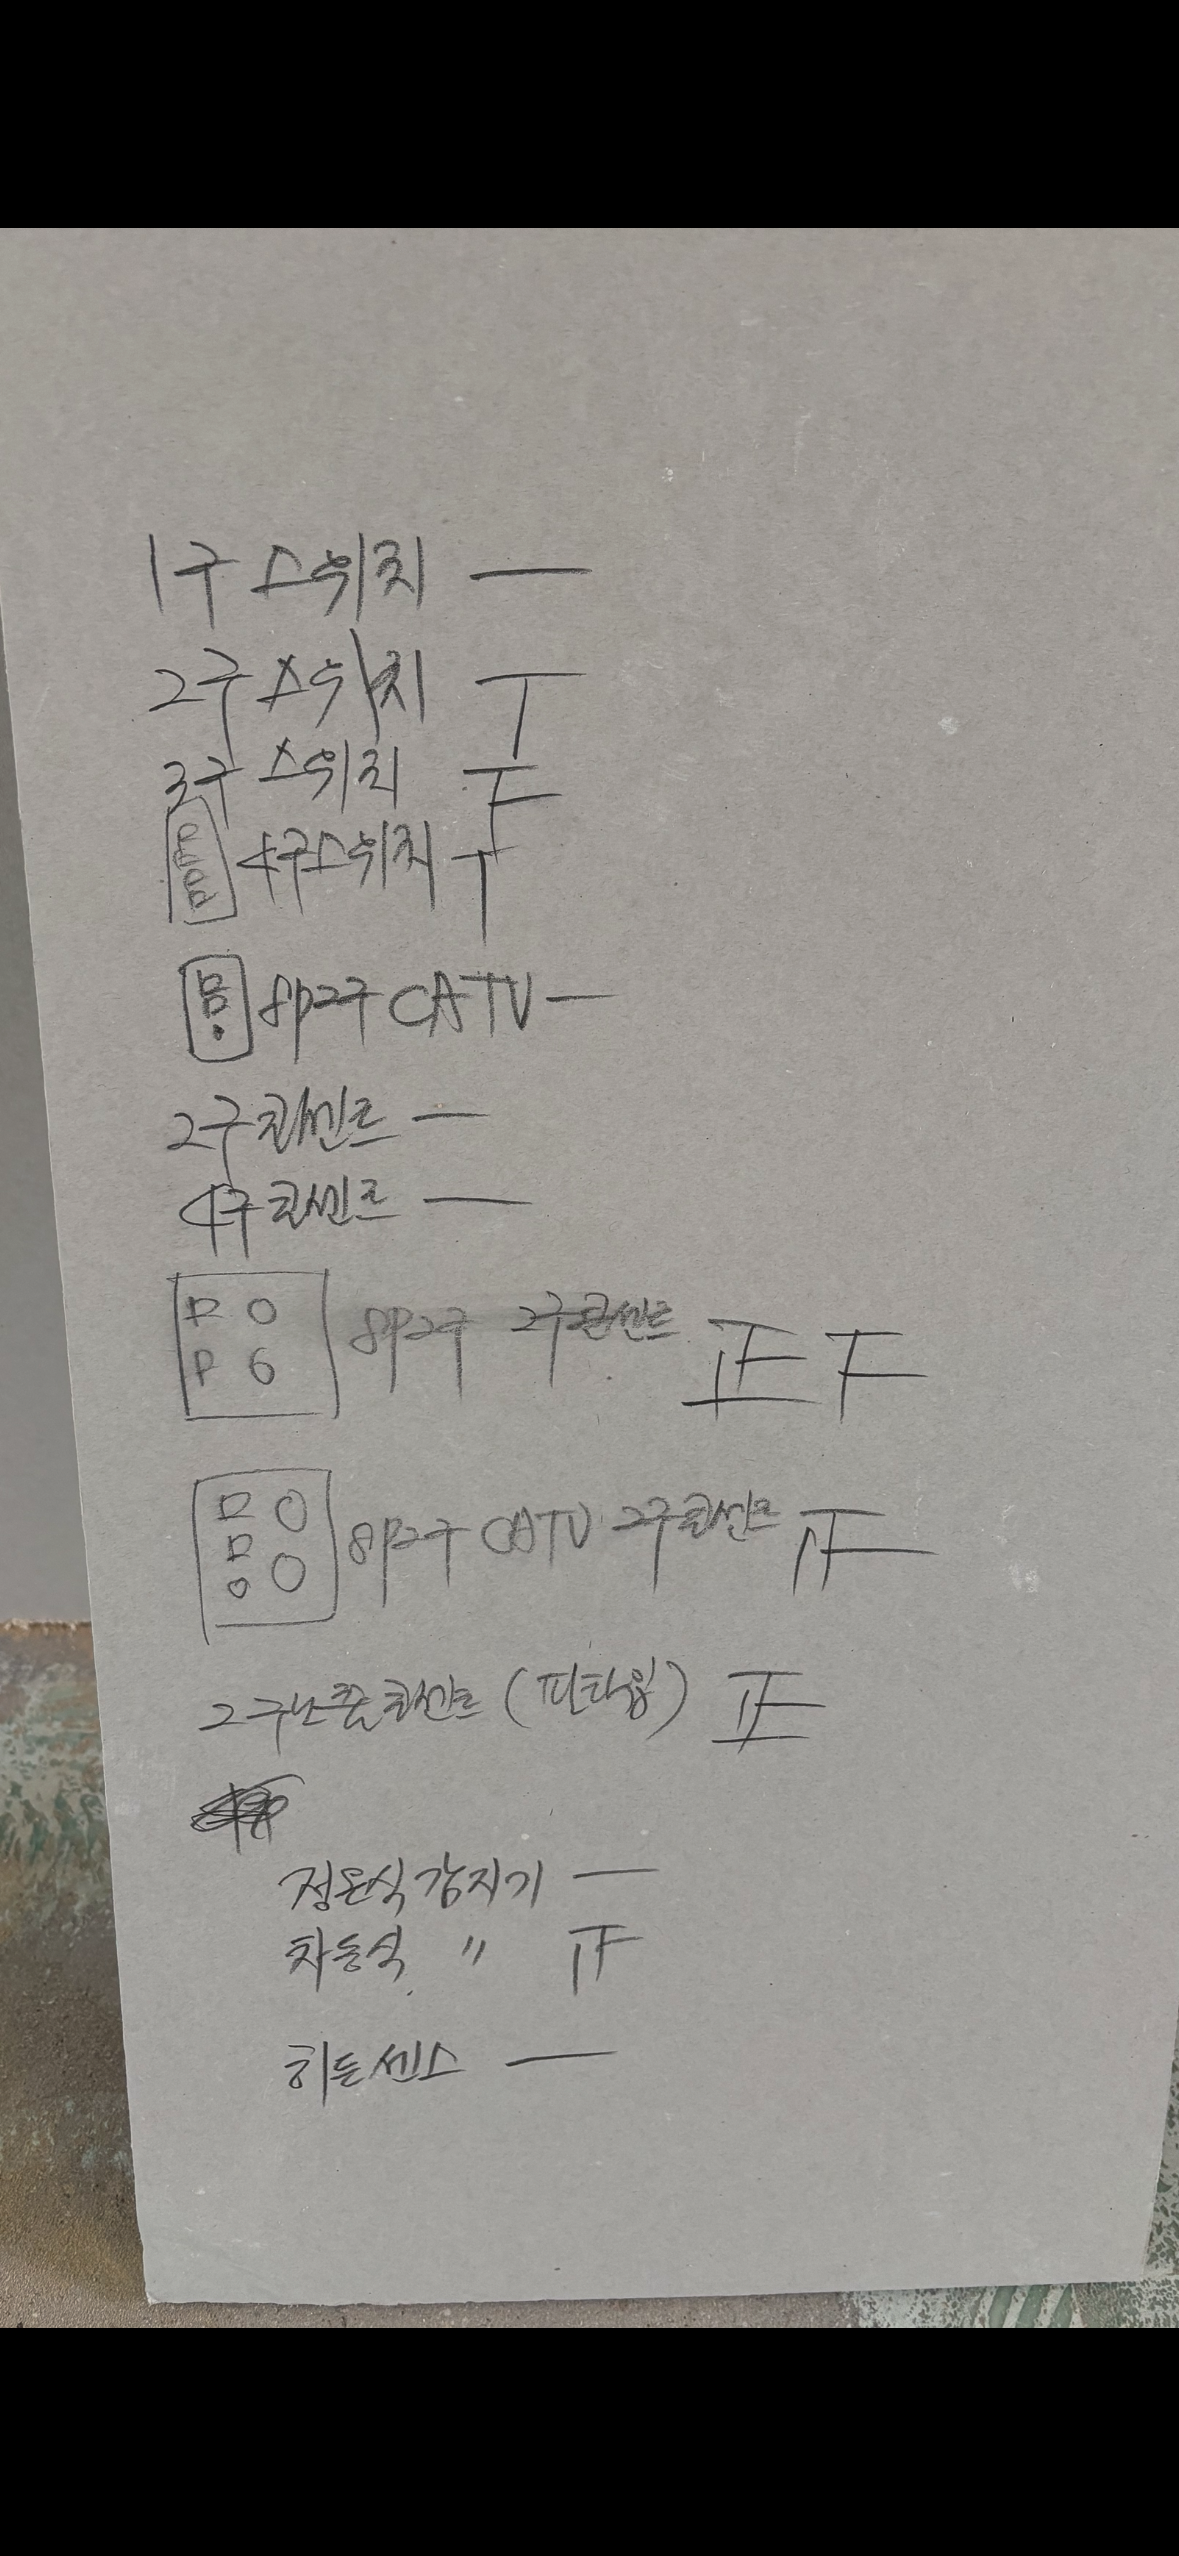 1구 스위치 一
2구 스위치 丅
3구 스위치 下
4구 스위치 丅
8P2구 CATV 一
2구 콘센트 一
4구 콘센트 一
8P2구 2구콘센트 正下
8P2구 CATV 2구콘센트 止
2구 콘센트 (핀타입) 正
정온식 감지기 一
차동식 〃
히든센스 一